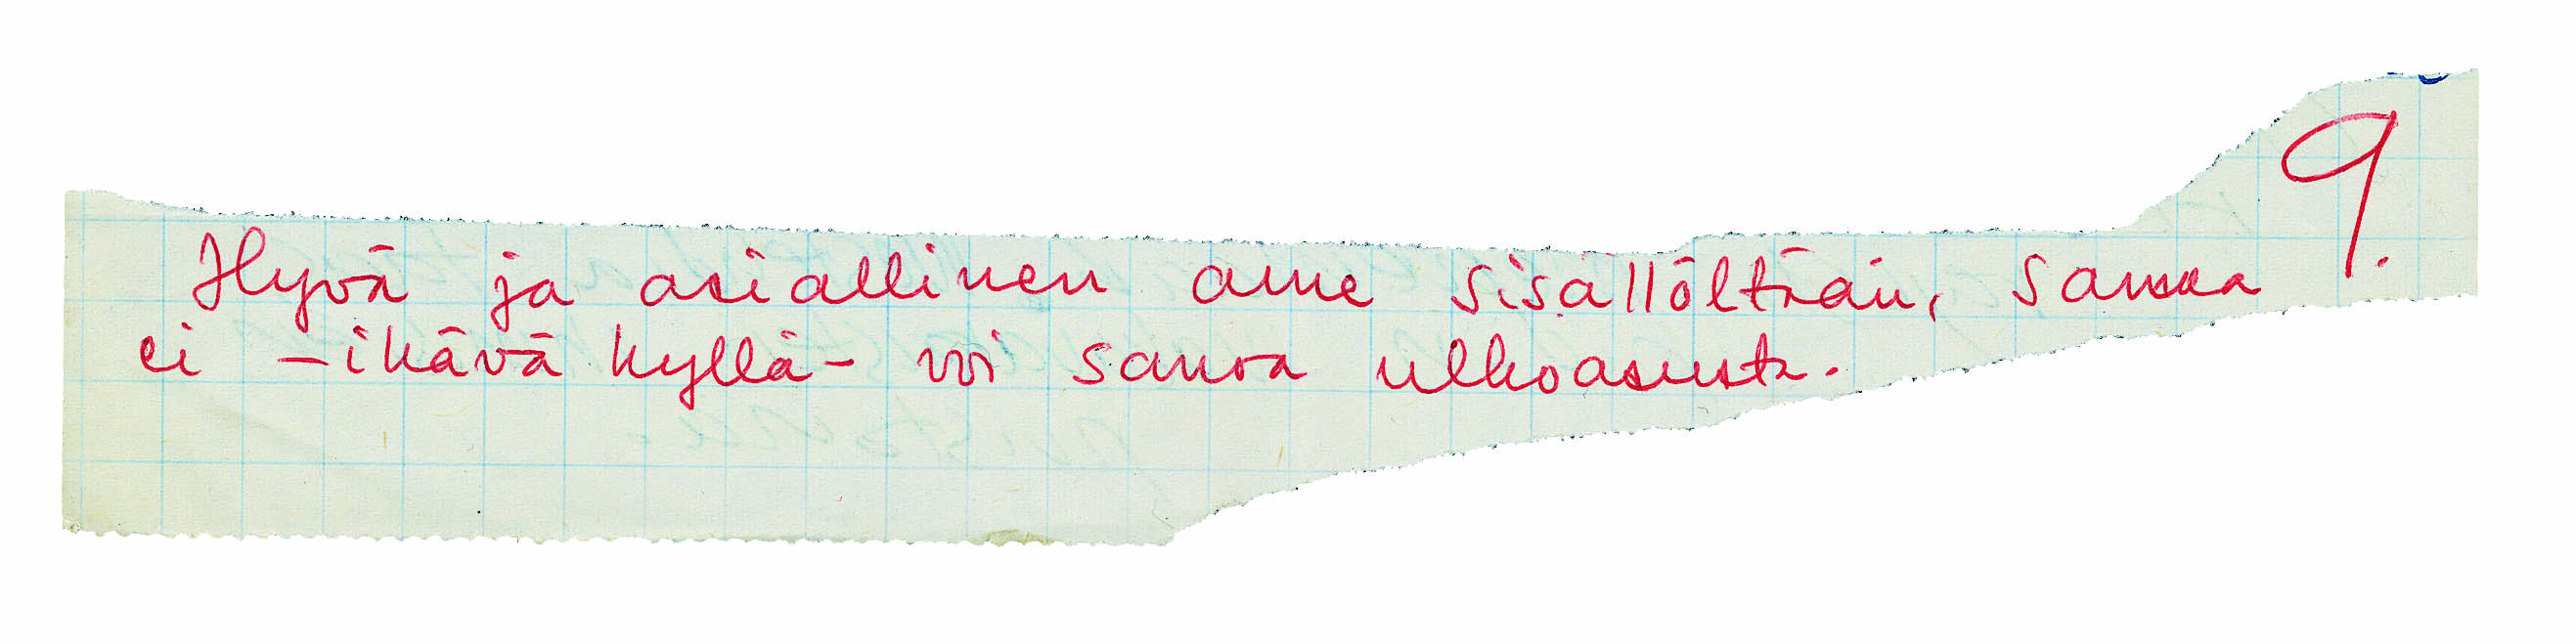 9.
Hyvä ja asiallinen aine sisällöltään, samaa
ei - ikävä kyllä - voi sanoa ulkoasusta.